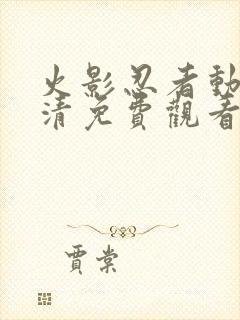 火影忍者動
清免費觀看
賈棠